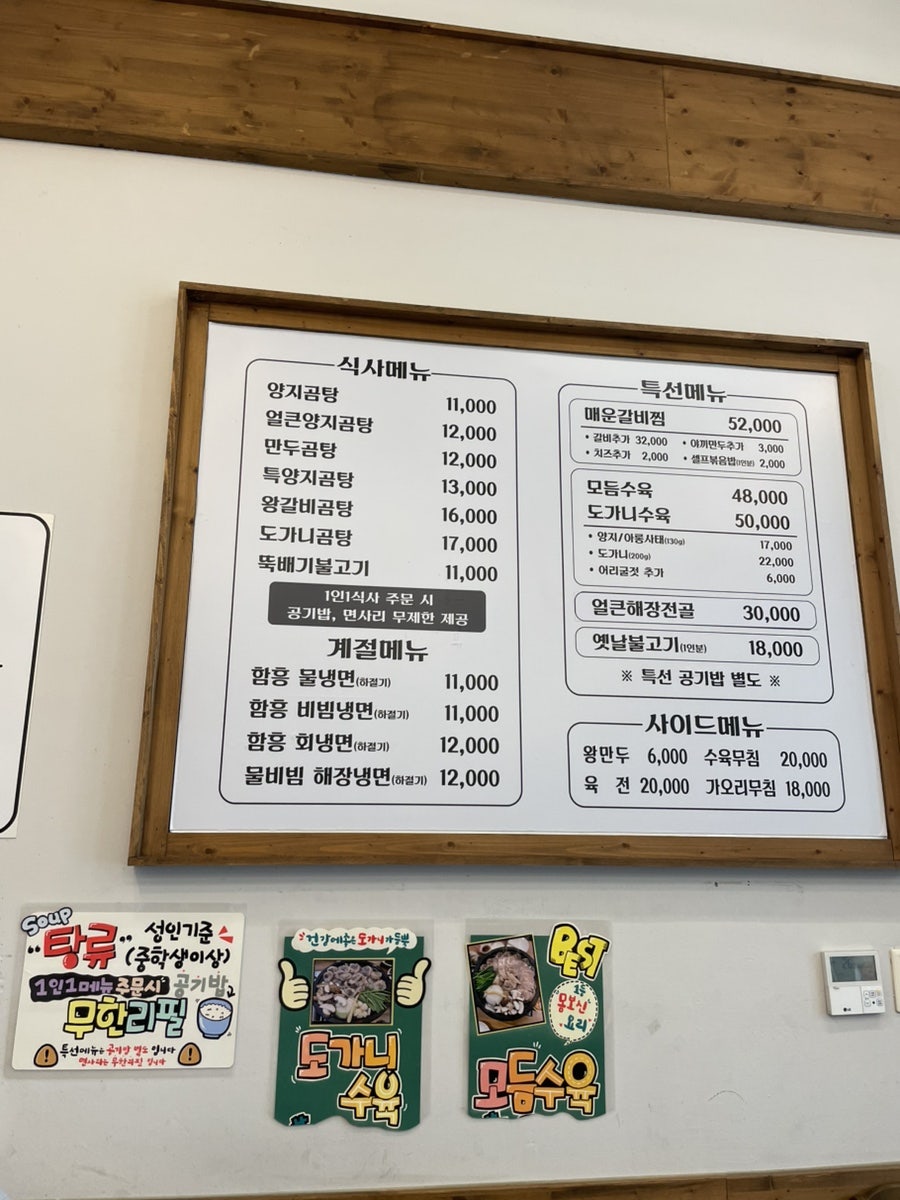 식사메뉴
양지곰탕 11,000
얼큰양지곰탕 12,000
만두곰탕 12,000
특양지곰탕 13,000
왕갈비곰탕 16,000
도가니곰탕 17,000
뚝배기불고기 11,000
1인1식사 주문 시
공기밥, 면사리 무제한 제공
계절메뉴
함흥 물냉면(하절기) 11,000
함흥 비빔냉면(하절기) 11,000
함흥 회냉면(하절기) 12,000
물비빔 해장냉면(하절기) 12,000
특선메뉴
매운갈비찜 52,000
• 갈비추가 32,000 • 야끼만두추가 3,000
• 치즈추가 2,000 • 셀프볶음밥(1인분) 2,000
모듬수육 48,000
도가니수육 50,000
• 양지/아롱사태(130g) 17,000
• 도가니(200g) 22,000
• 어리굴젓 추가 6,000
얼큰해장전골 30,000
옛날불고기(1인분) 18,000
※ 특선 공기밥 별도 ※
사이드메뉴
왕만두 6,000 수육무침 20,000
육 전 20,000 가오리무침 18,000
SOUP
"탕류" 성인기준
(중학생이상)
1인1메뉴 주문시 공기밥
무한리필
특선메뉴는 공기밥 별도 입니다
면사리는 무한리필 입니다
도가니
수육
BEST
1등
몸보신
요리
모듬수육
LG